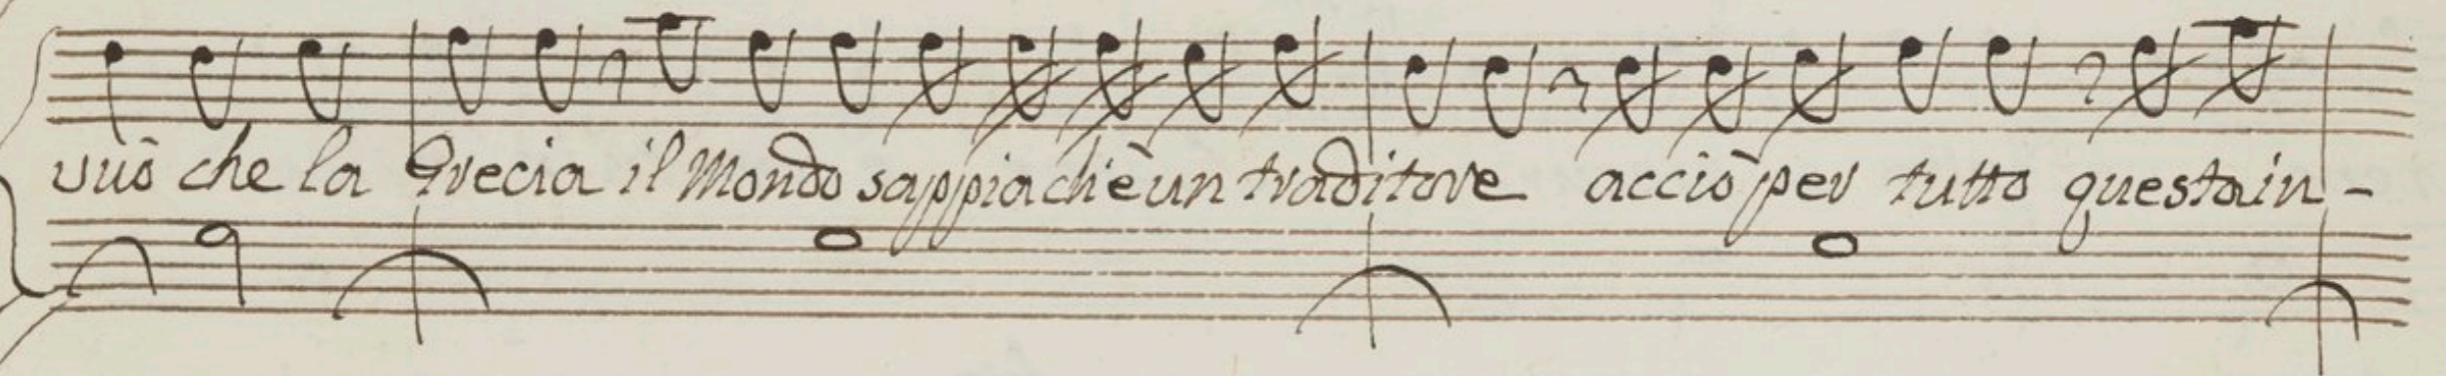 vuò che la Grecia il Mondo sappia ch'è un traditore acciò per tutto questo in-